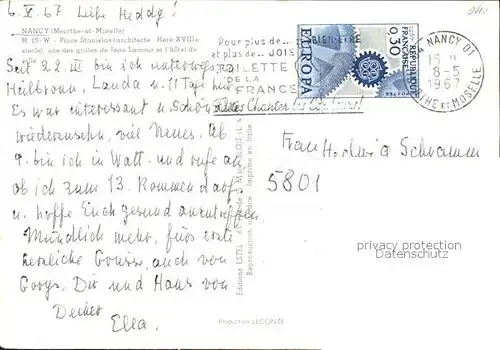 6. V. 67 Liebe Heddy!
NANCY (Meurthe-et-Moselle)
H. 15-W - Place Stanislas (architecte Héré XVIIIe
siècle), une des grilles de Jean Lamour et l'hôtel de
Seit 22. III bin ich unterwegs
Heilbronn, Landa u. 11 Tage hier
Es war interessant u. Schön
wiederzusehn, viel Neues. Ab
9. bin ich in Watt. und rufe an
ob ich zum 13. kommen darf
u. hoffe Euch gesund anzutreffen
Mündlich mehr, fürs erste
herzliche Grüsse, auch von
Georg. Dir und Hans von
Deiner
Ella.
Pour plus de...
et plus de... JOIE
BIEN-ETRE
TOILETTE
DE LA
FRANCE
Faites Chanter les Couleurs!
EUROPA
0,30
REPUBLIQUE
FRANÇAISE
POSTES
NANCY
8-5
1967
MEURTHE ET MOSELLE
Frau Hedwig Schramm
5801
Imprimé en Italie
Reproduction interdite
Production LECONTE
privacy protection
Datenschutz